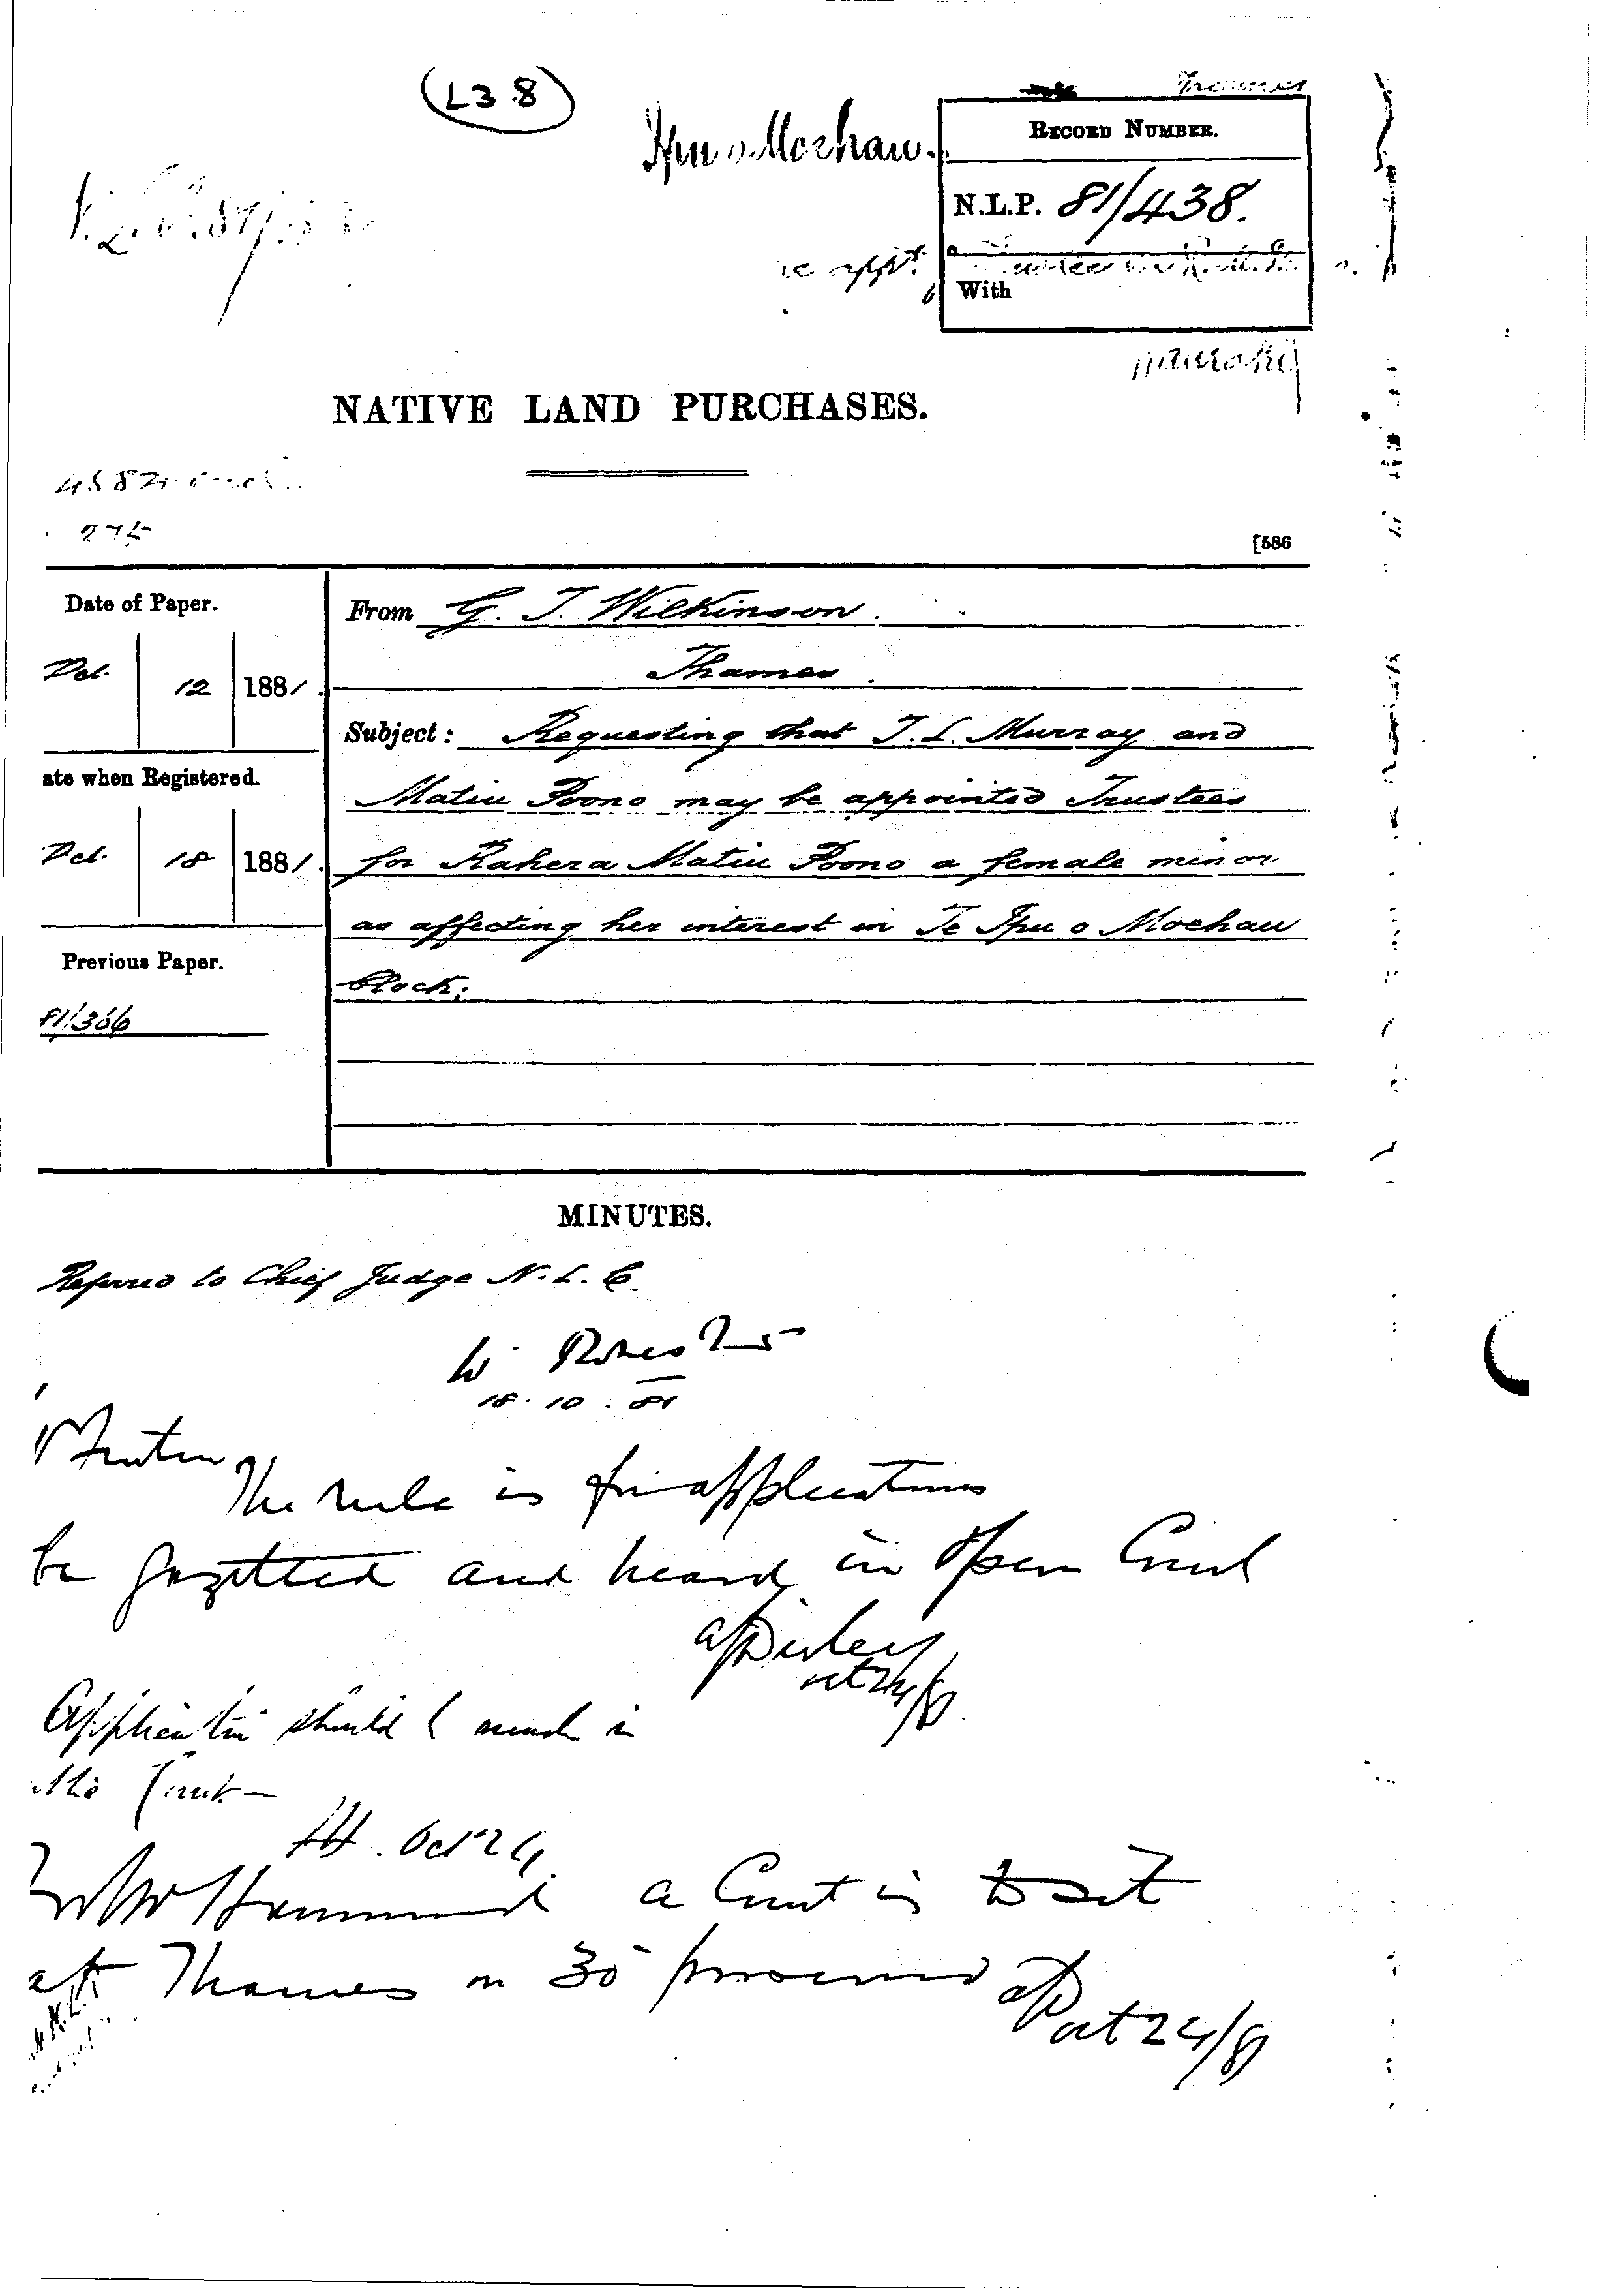 (L3.8)
Thames
Ipu o Moehau.
RECORD NUMBER.
N.L.P. 81/438.
re appt.
With
NATIVE LAND PURCHASES.
[586
Date of Paper.
Oct. 12 1881.
From G. T. Wilkinson.
Thames.
Subject: Requesting that T. L. Murray and
Matiu Poono may be appointed Trustees
for Rahera Matiu Poono a female minor
as affecting her interest in Te Ipu o Moehau
block.
ate when Registered.
Oct. 18 1881.
Previous Paper.
81/366
MINUTES.
Referred to Chief Judge N. L. C.
W.
18.10.81
The rule is for applications
be gazetted and heard in Open Court
Oct 24/81.
Application should be made in
the Court—
Oct 24
a Court is to sit
at Thames on 30 proximo
Oct 24/81